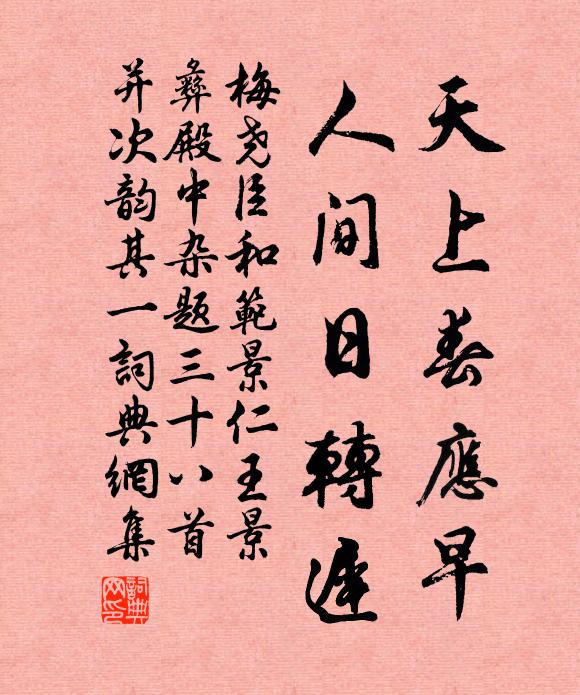 天上春應早
人间日轉遲
梅尧臣和範景仁王景
彝殿中杂题三十八首
并次韵其一詞典網集
詞典網印